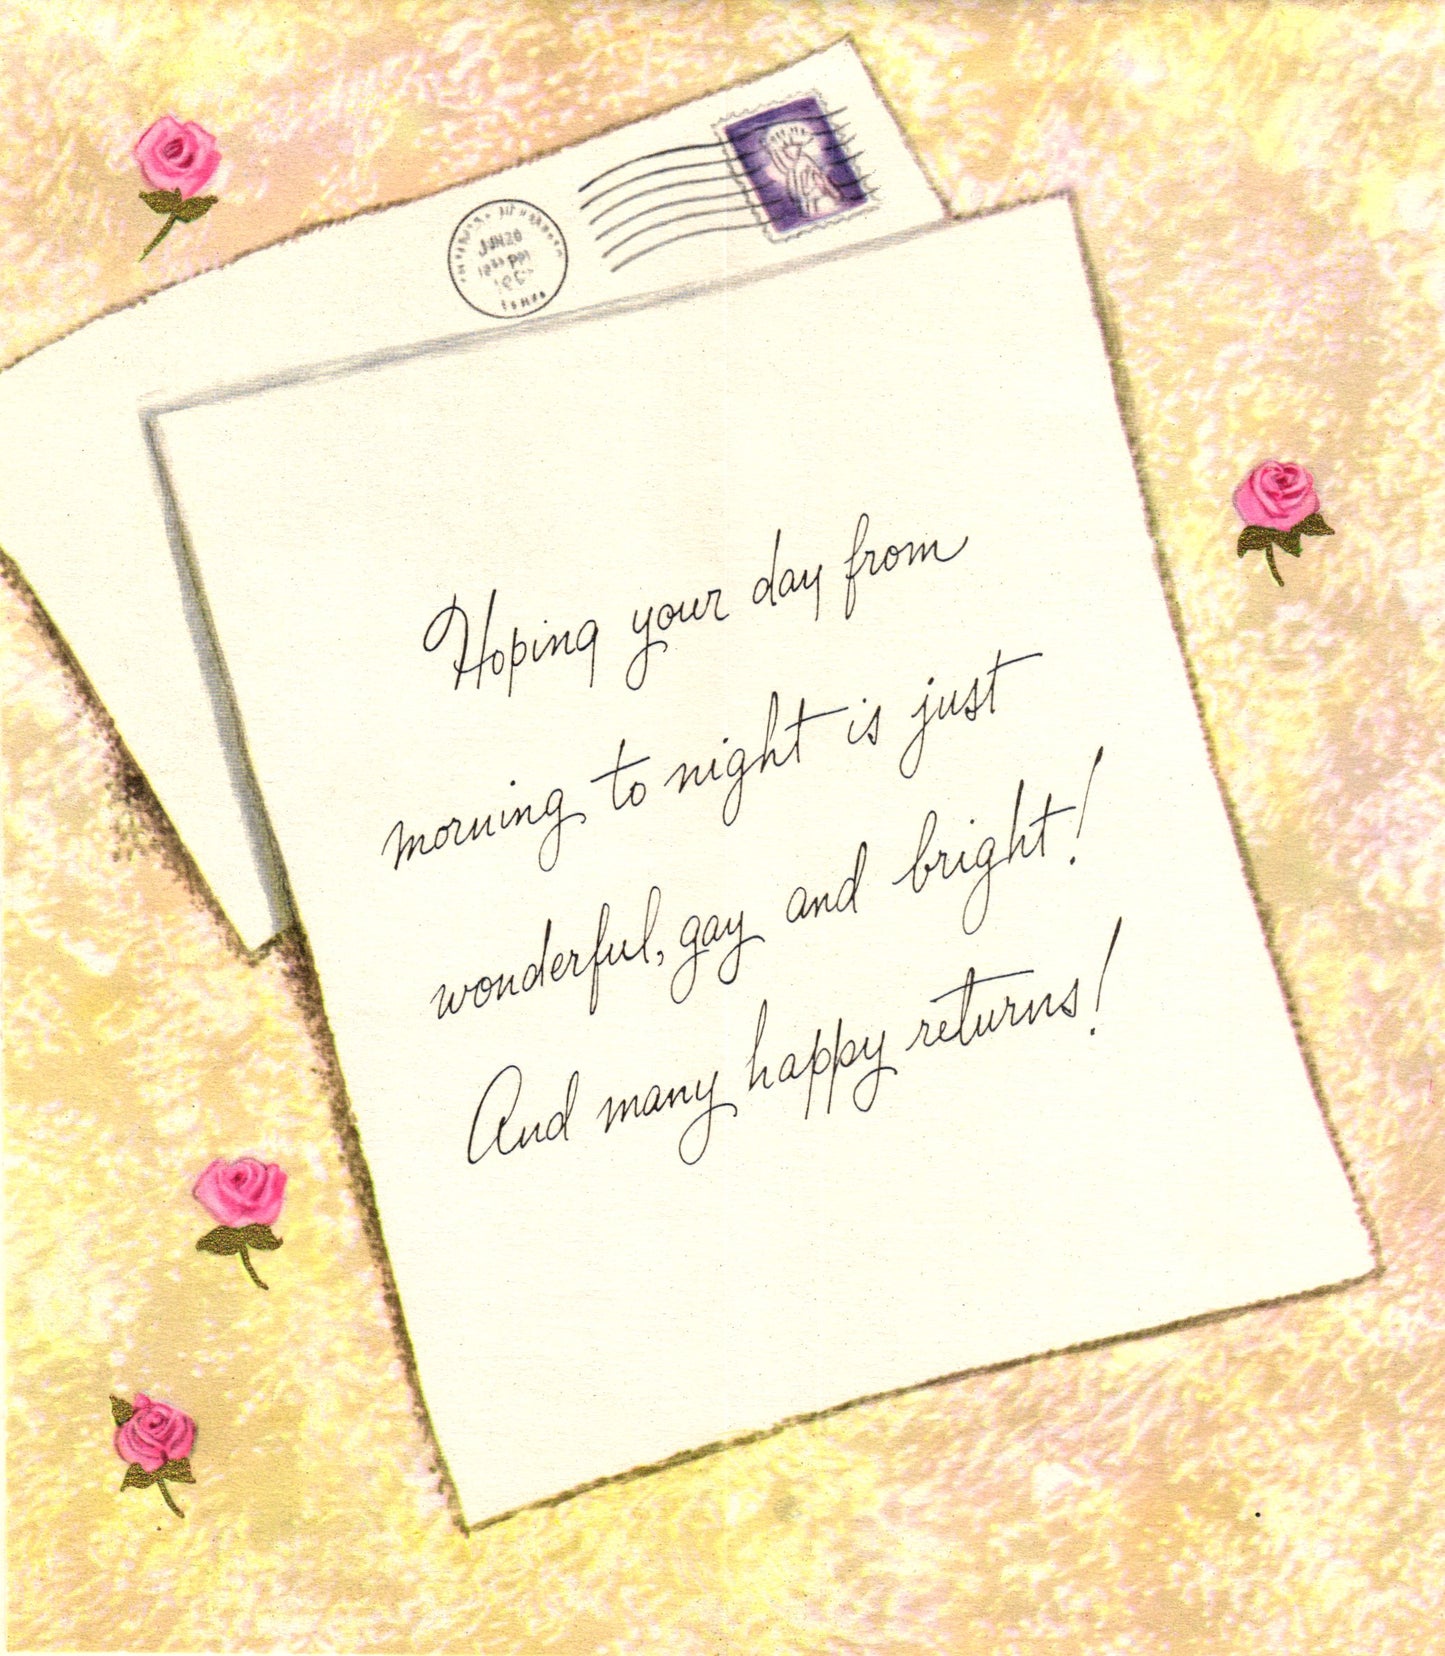 JUN 20
Hoping your day from
morning to night is just
wonderful, gay and bright!
And many happy returns!